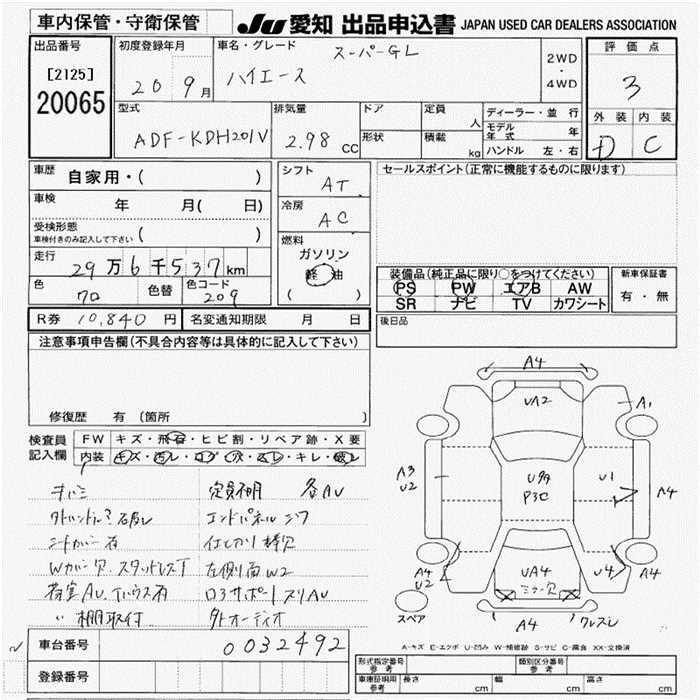 車内保管・守衛保管
JU 愛知 出品申込書 JAPAN USED CAR DEALERS ASSOCIATION
出品番号
[2125]
20065
初度登録年月
20 9月
車名・グレード
スーパーGL
ハイエース
2WD
・
4WD
評価点
3
外装 内装
D C
型式
ADF-KDH201V
排気量
2.98 cc
ドア
形状
定員
人
積載
kg
ディーラー・並行
モデル年式 年
ハンドル 左・右
車歴
自家用・( )
車検
年 月( 日)
受検形態
車検付きのみ記入して下さい ( )
走行
29万6千537km
色
黒
色替
色コード
209
シフト
AT
冷房
AC
燃料
ガソリン
軽油
( )
セールスポイント(正常に機能するものに限ります)
装備品(純正品に限り〇をつけてください)
PS PW エアB AW
SR ナビ TV カワシート
新車保証書
有・無
R券 10,840円
名変通知期限 月 日
後日品
注意事項申告欄(不具合内容等は具体的に記入して下さい)
修復歴 有(箇所 )
検査員
記入欄
FW キズ・飛石・ヒビ割・リペア跡・X要
内装 キズ・汚レ・コゲ・穴・スレ・キレ・破レ
定員不明 各AU
シートカバー有
Wカバー欠 スタッドレスT
左側面W2
〃 棚取付
外オーディオ
A4
UA2
A1
A3
U2
U9A
P3C
U1
A4
A4
U2
UA4
ミラー欠
U4
A4
スペア
A4
A-キズ E-エクボ U-凹み W-補修跡 S-サビ C-腐食 XX-交換済
車台番号
0032492
登録番号
形式指定番号
参考
類別区分番号
参考
車庫証明用
参考
長さ cm
幅 cm
高さ cm